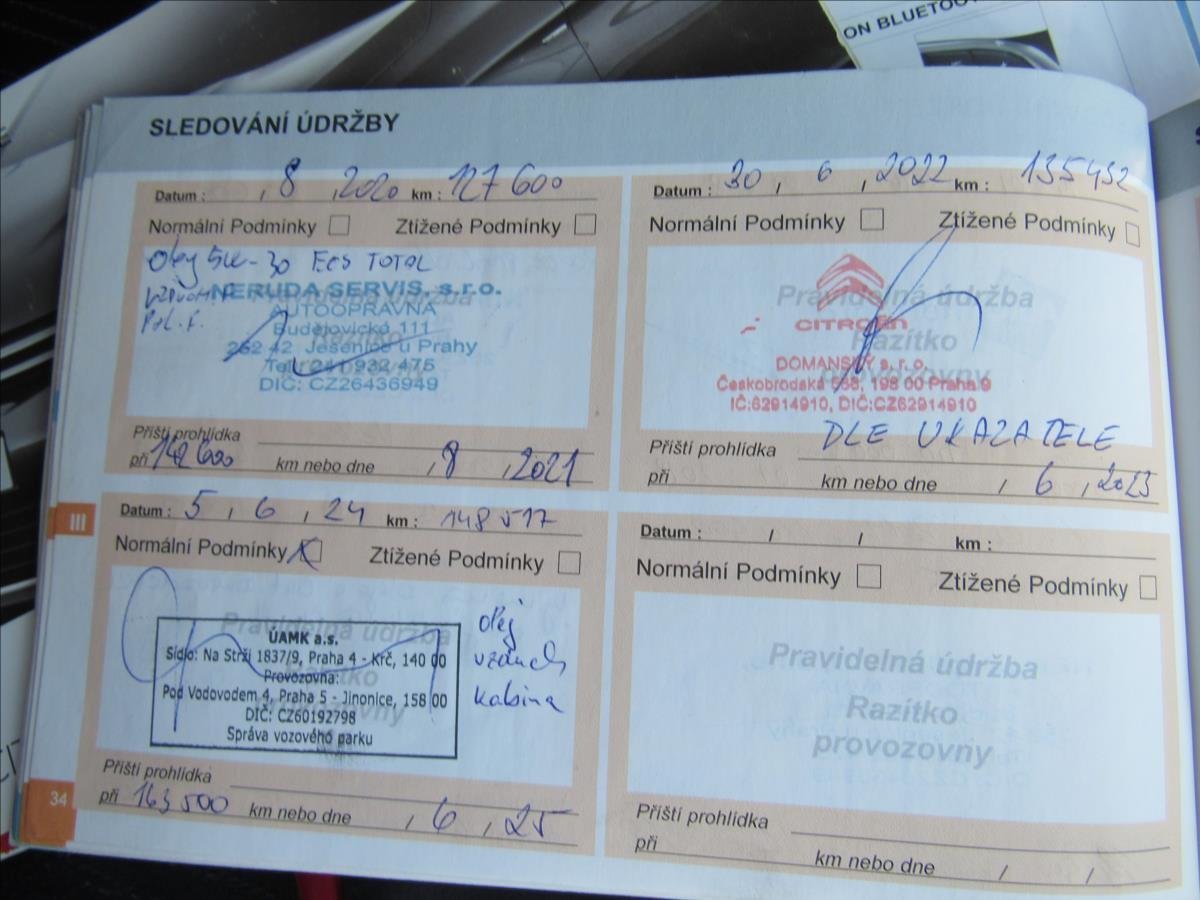 ON BLUETOO
SLEDOVÁNÍ ÚDRŽBY
Datum : , 8 , 2020 km : 127 600
Normální Podmínky Ztížené Podmínky
Olej 5W-30 ECS TOTAL
NERUDA SERVIS, s.r.o.
AUTOOPRAVNA
Budějovická 111
252 42 Jesenice u Prahy
Tel.: 241 932 475
DIČ: CZ26436949
Příští prohlídka
při 142600 km nebo dne , 8 , 2021
Datum : 30 , 6 , 2022 km : 135432
Normální Podmínky Ztížené Podmínky
Pravidelná údržba
Razítko
provozovny
CITROËN
DOMANSKÝ s. r. o.
Českobrodská 558, 198 00 Praha 9
IČ:62914910, DIČ:CZ62914910
Příští prohlídka DLE UKAZATELE
při km nebo dne , 6 , 2023
III
Datum : 5 , 6 , 24 km : 148 517
Normální Podmínky X Ztížené Podmínky
Pravidelná údržba
Razítko
provozovny
ÚAMK a.s.
Sídlo: Na Strži 1837/9, Praha 4 - Krč, 140 00
Provozovna:
Pod Vodovodem 4, Praha 5 - Jinonice, 158 00
DIČ: CZ60192798
Správa vozového parku
olej
vzduch
kabina
Příští prohlídka
při 163 500 km nebo dne , 6 , 25
Datum : / / km :
Normální Podmínky Ztížené Podmínky
Pravidelná údržba
Razítko
provozovny
Příští prohlídka
při km nebo dne / /
34